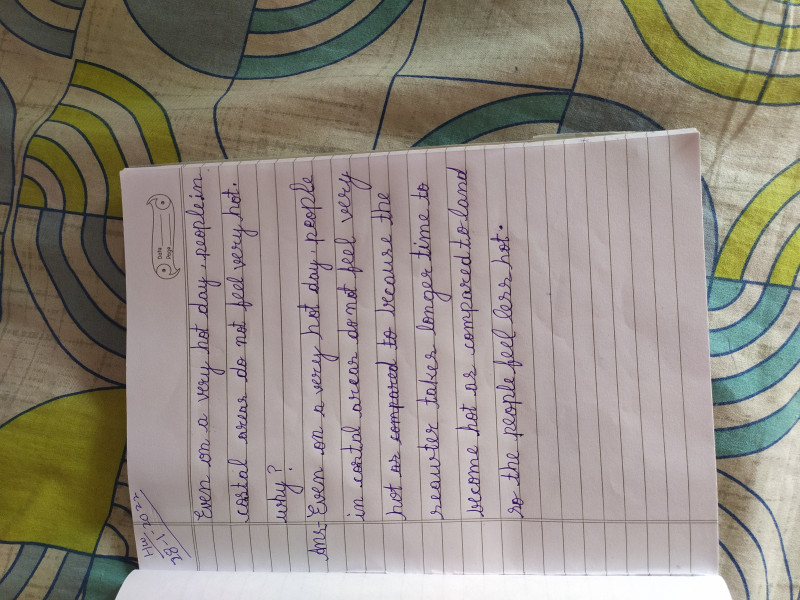 HW. 2022
28-1
Date
Page
Even on a very hot day, people in
costal areas do not feel very hot.
why?
Ans- Even on a very hot day people
in costal areas donot feel very
hot as compared to because the
seawter takes longer time to
become hot as compared to land
so the people feel less hot.